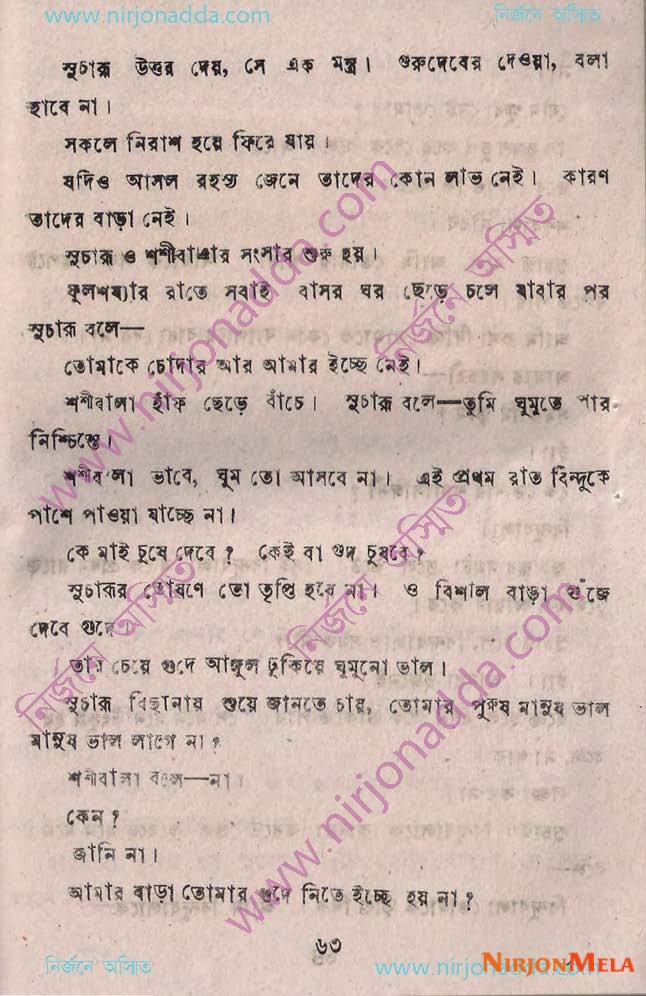 www.nirjonadda.com নির্জনে অস্মিত
সুচারু উত্তর দেয়, সে এক মন্ত্র। গুরুদেবের দেওয়া, বলা
হাবে না।
সকলে নিরাশ হয়ে ফিরে যায়।
যদিও আসল রহস্য জেনে তাদের কোন লাভ নেই। কারণ
তাদের বাড়া নেই।
সুচারু ও শশীবালার সংসার শুরু হয়।
ফুলশয্যার রাতে সবাই বাসর ঘর ছেড়ে চলে যাবার পর
সুচারু বলে—
তোমাকে চোদার আর আমার ইচ্ছে নেই।
শশীবালা হাঁফ ছেড়ে বাঁচে। সুচারু বলে—তুমি ঘুমুতে পার
নিশ্চিন্তে।
শশীবালা ভাবে, ঘুম তো আসবে না। এই প্রথম রাত বিন্দুকে
পাশে পাওয়া যাচ্ছে না।
কে মাই চুষে দেবে? কেই বা গুদ চুষবে?
সুচারুর চোষণে তো তৃপ্তি হবে না। ও বিশাল বাড়া গুঁজে
দেবে গুদে।
তার চেয়ে গুদে আঙ্গুল ঢুকিয়ে ঘুমুনো ভাল।
সুচারু বিছানায় শুয়ে জানতে চায়, তোমার পুরুষ মানুষ ভাল
মানুষ ভাল লাগে না?
শশীবালা বলে—না।
কেন?
জানি না।
আমার বাড়া তোমার গুদে নিতে ইচ্ছে হয় না?
৬৩
নির্জনে অস্মিত www.nirjonadda.com
NIRJONMELA
www.nirjonadda.com
নির্জনে অস্মিত
www.nirjonadda.com
নির্জনে অস্মিত
নির্জনে অস্মিত